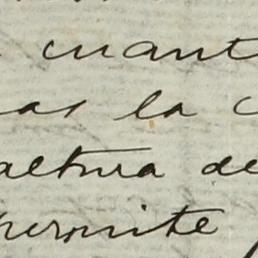 cuant
as la
altura de
permite